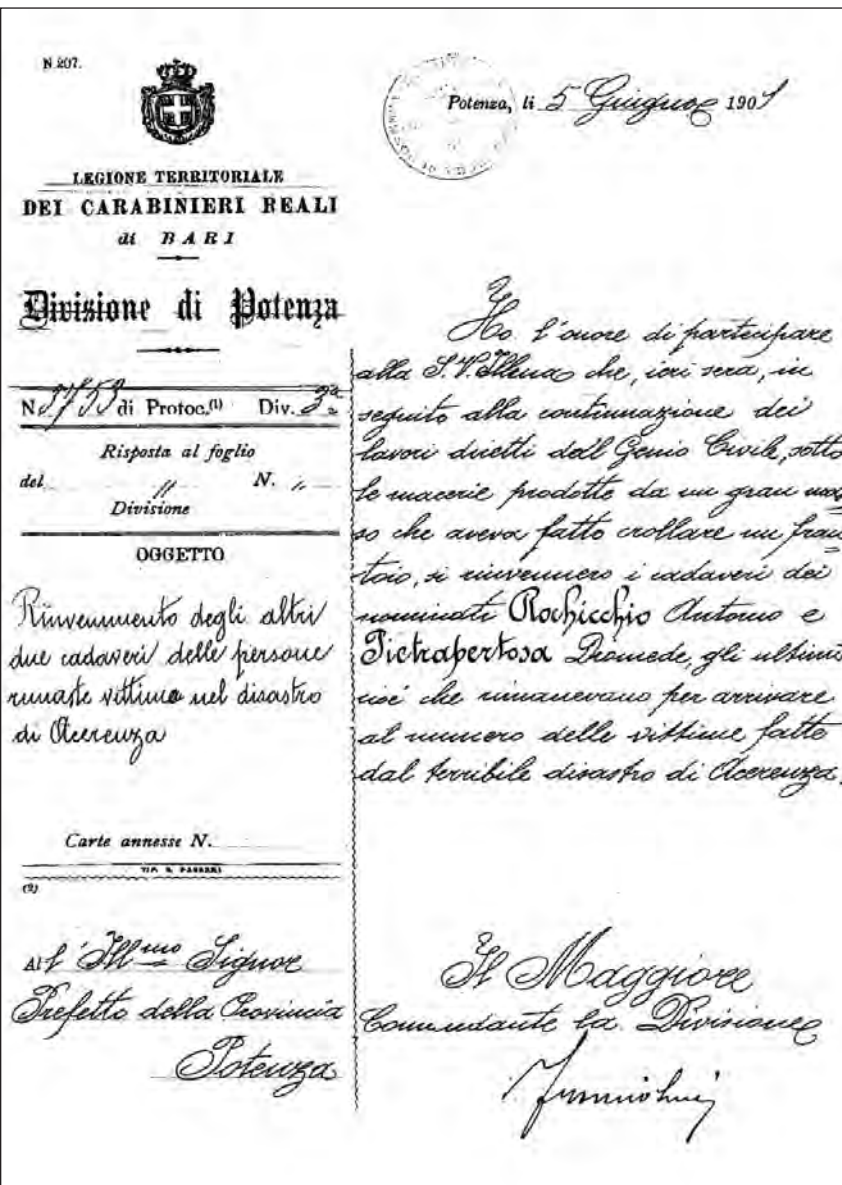 N. 207.
Potenza, li 5 Giugno 1901
LEGIONE TERRITORIALE
DEI CARABINIERI REALI
di BARI
Divisione di Potenza
di Protoc.(1) Div. 3a
Risposta al foglio
del " N. "
Divisione
OGGETTO
Rinvenimento degli altri
due cadaveri delle persone
rimaste vittime nel disastro
di Acerenza
Carte annesse N.
TIP. PASSARI
(2)
All'Ill.mo Signor
Prefetto della Provincia
Potenza
Ho l'onore di partecipare
alla S.V. Illma che, ieri sera, in
seguito alla continuazione dei
lavori diretti dal Genio Civile, sotto
le macerie prodotte da un gran mas
so che aveva fatto crollare un fran
toio, si rinvennero i cadaveri dei
nominati Rochicchio Antonio e
Pietrapertosa Diomede, gli ultimi
cioè che rimanevano per arrivare
al numero delle vittime fatte
dal terribile disastro di Acerenza.
Il Maggiore
Comandante la Divisione